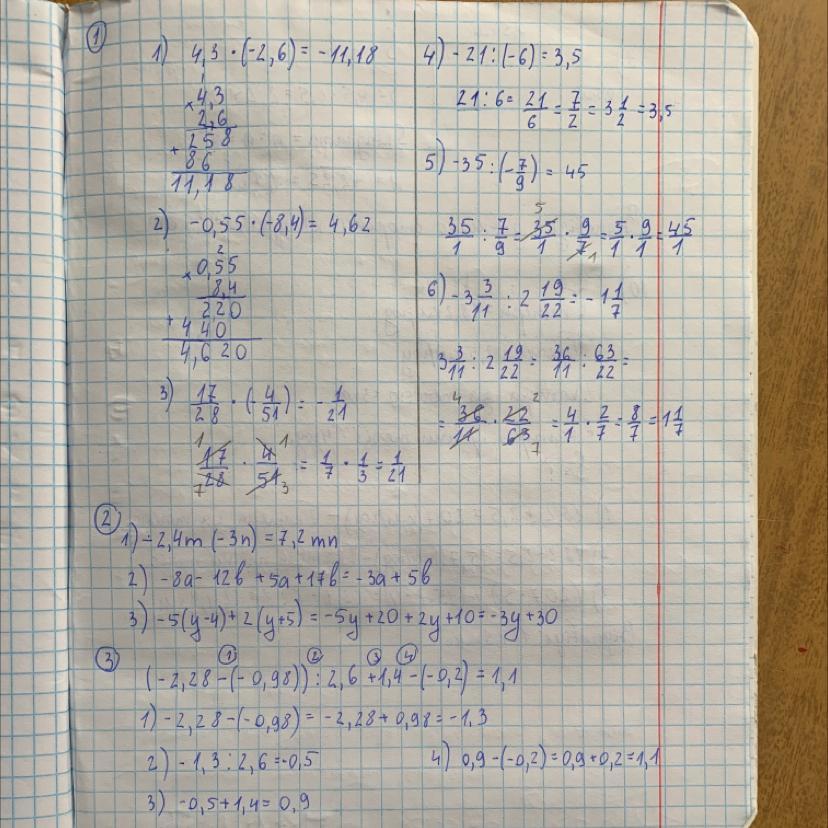 ①
1) 4,3 · (-2,6) = -11,18
1
× 4,3
2,6
+ 258
86
11,18
2) -0,55 · (-8,4) = 4,62
2
× 0,55
8,4
+ 220
440
4,620
3) 17/28 · (-4/51) = -1/21
17/28 · 4/51 = 1/7 · 1/3 = 1/21
1 1
7 3
4) -21 : (-6) = 3,5
21 : 6 = 21/6 = 7/2 = 3 1/2 = 3,5
5) -35 : (-7/9) = 45
35/1 : 7/9 = 35/1 · 9/7 = 5/1 · 9/1 = 45/1
5
1
6) -3 3/11 : 2 19/22 = -1 1/7
3 3/11 : 2 19/22 = 36/11 : 63/22 =
= 36/11 · 22/63 = 4/1 · 2/7 = 8/7 = 1 1/7
4 2
7
②
1) -2,4m (-3n) = 7,2mn
2) -8a - 12b + 5a + 17b = -3a + 5b
3) -5(y-4) + 2(y+5) = -5y + 20 + 2y + 10 = -3y + 30
③
① ② ③ ④
(-2,28 - (-0,98)) : 2,6 + 1,4 - (-0,2) = 1,1
1) -2,28 - (-0,98) = -2,28 + 0,98 = -1,3
2) -1,3 : 2,6 = -0,5
3) -0,5 + 1,4 = 0,9
4) 0,9 - (-0,2) = 0,9 + 0,2 = 1,1